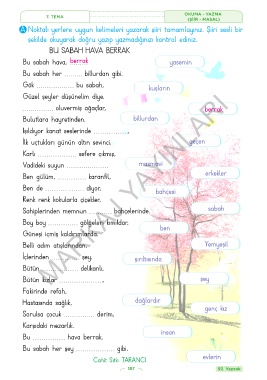 7. TEMA
OKUMA - YAZMA
(ŞİİR - MASAL)
A Noktalı yerlere uygun kelimeleri yazarak şiiri tamamlayınız. Şiiri sesli bir
şekilde okuyarak doğru yazıp yazmadığınızı kontrol ediniz.
BU SABAH HAVA BERRAK
Bu sabah hava, berrak
Bu sabah her .......... billurdan gibi.
Gök .......... bu sabah,
Güzel şeyler düşünelim diye.
.......... oluvermiş ağaçlar,
Bulutlara hayretinden.
Işıldıyor kanat seslerinde ..........,
İlk uçtukları günün altın sevinci.
Karlı .......... sefere çıkmış,
Vadideki suyun ..........
Ben gülüm, .......... karanfil,
Ben de .......... diyor.
Renk renk kokularla çiçekler,
Sahiplerinden memnun .......... bahçelerinde
Boy boy .......... gölgeleri
Güneşi içmiş kaldırımlarda.
Belli adım atışlarından,
İçlerinden .......... şey.
Bütün .......... delikanlı,
Bütün kızlar ..........,
Fakirinde refah,
Hastasında sağlık,
Sorulsa çocuk .......... derim,
Karşıdaki mezarlık.
Bu .......... hava berrak.
Bu sabah her şey .......... gibi.
Cahit Sıtkı TARANCI
yasemin
kuşların
berrak
billurdan
geçen
masmavi
erkekler
bahçesi
sabah
ben
Yemyeşil
şırıltısında
şey
dağlardır
genç kız
insan
evlerin
MARKAJ YAYINLARI
187